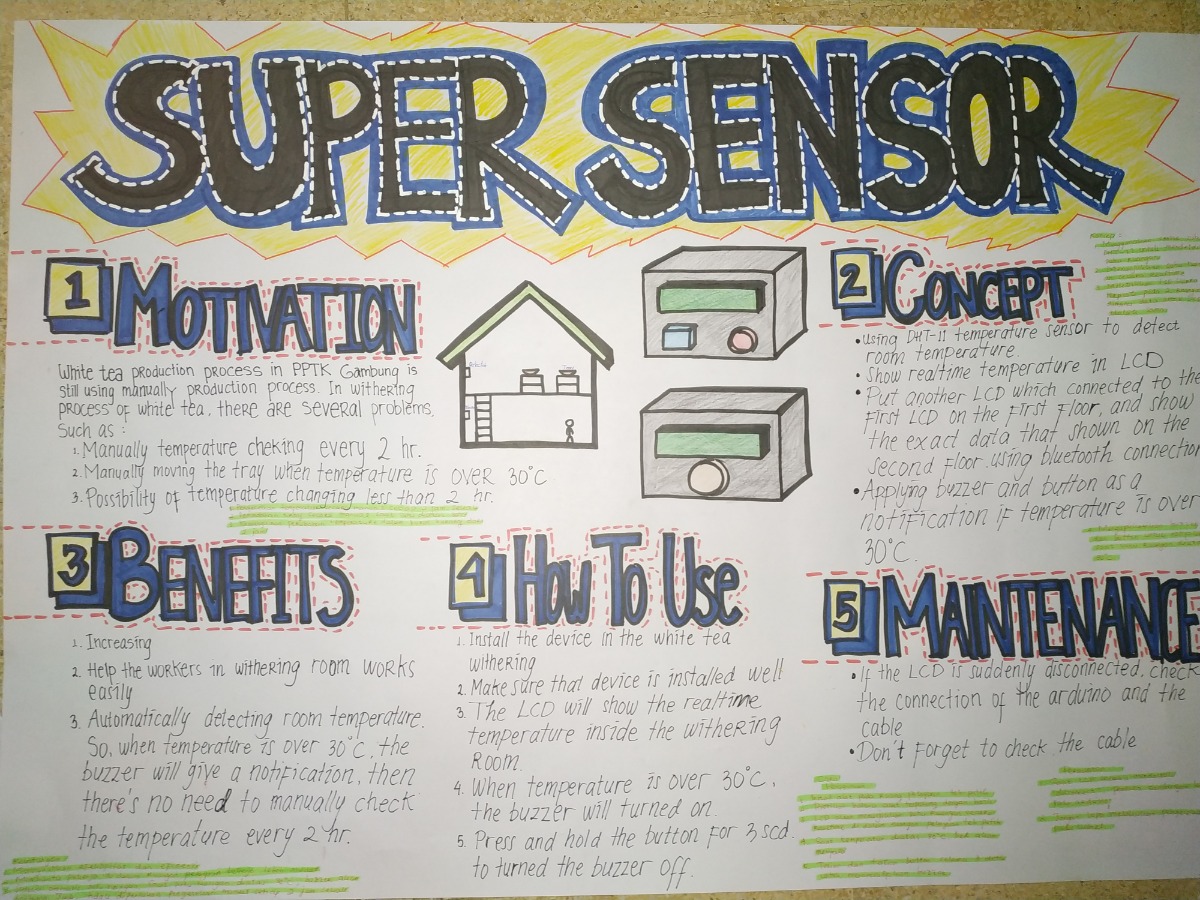 SUPER SENSOR
1 MOTIVATION
White tea production process in PPTK Gambung is
still using manually production process. In withering
process of white tea, there are several problems,
Such as :
1. Manually temperature cheking every 2 hr.
2. Manually moving the tray when temperature is over 30°C
3. Possibility of temperature changing less than 2 hr.
2 CONCEPT
• Using DHT-11 temperature sensor to detect
room temperature.
• Show realtime temperature in LCD
• Put another LCD which connected to the
first LCD on the first floor, and show
the exact data that shown on the
second floor using bluetooth connection
• Applying buzzer and button as a
notification if temperature is over
30°C.
3 BENEFITS
1. Increasing
2. Help the workers in withering room works
easily
3. Automatically detecting room temperature.
So, when temperature is over 30°C, the
buzzer will give a notification, then
there's no need to manually check
the temperature every 2 hr.
4 HOW TO USE
1. Install the device in the white tea
withering
2. Make sure that device is installed well
3. The LCD will show the realtime
temperature inside the withering
Room.
4. When temperature is over 30°C,
the buzzer will turned on.
5. Press and hold the button for 3 scd.
to turned the buzzer off.
5 MAINTENANCE
• If the LCD is suddenly disconnected, check
the connection of the arduino and the
cable
• Don't forget to check the cable